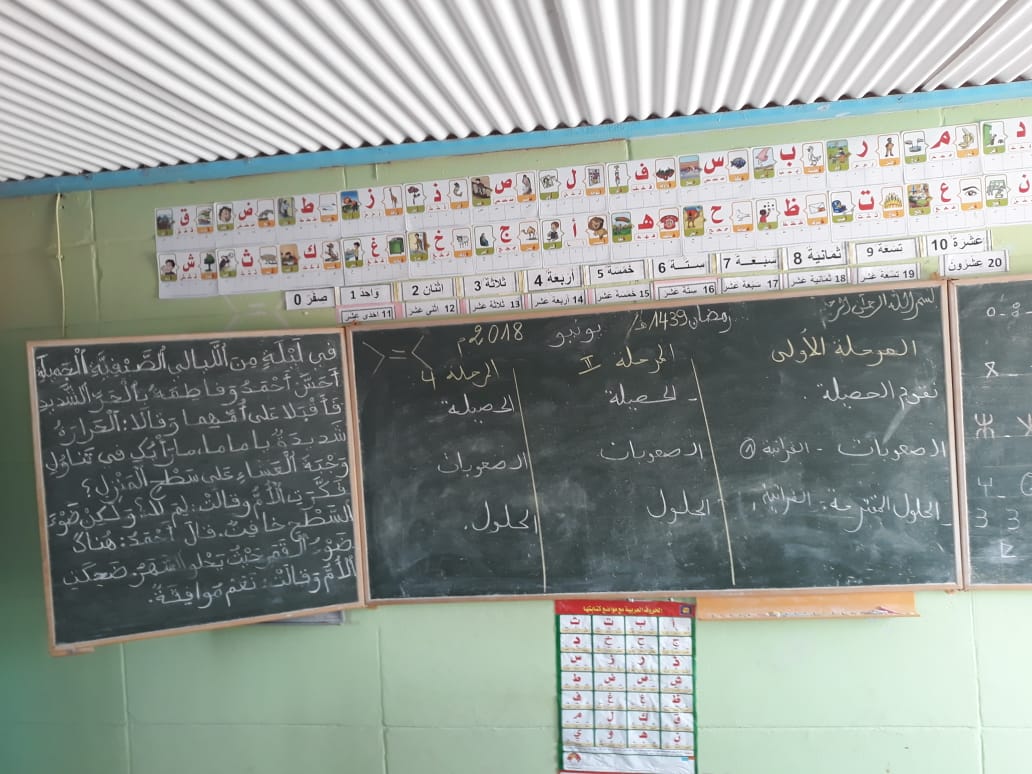 د م ر ب س ف ل ص ذ ز ط ض ق
ن ع ت ظ ح ه أ ج خ غ ك ث ش
صفر 0 واحد 1 اثنان 2 ثلاثة 3 أربعة 4 خمسة 5 ستة 6 سبعة 7 ثمانية 8 تسعة 9 عشرة 10
11 احدى عشر 12 اثنى عشر 13 ثلاثة عشر 14 أربعة عشر 15 خمسة عشر 16 ستة عشر 17 سبعة عشر 18 ثمانية عشر 19 تسعة عشر 20 عشرون
بسم الله الرحمن الرحيم
رمضان 1439 هـ يونيو 2018 م
المرحلة الأولى
تقويم الحصيلة .
الصعوبات - القرائية
- الحلول المقترحة: القرائية
المرحلة II
- الحصيلة
الصعوبات
الحلول
المرحلة 4
الحصيلة
الصعوبات
الحلول.
> = <
في لَيْلَةٍ مِنَ اللَّيالي الصَّيْفِيَّةِ الْجَميلَةِ
أَحَسَّ أَحْمَدُ وَفاطِمَةُ بِالْحَرِّ الشَّديدِ
فَأَقْبَلا عَلى أُمِّهِما وَقالا: الْحَرارَةُ
شَديدَةٌ يا ماما، ما رَأْيُكِ في تَناوُلِ
وَجْبَةِ الْعَشاءِ عَلى سَطْحِ الْمَنْزِلِ؟
فَكَّرَتِ الْأُمُّ وَقالَتْ: لِمَ لا؟ وَلَكِنْ ضَوْءُ
السَّطْحِ خافِتٌ. قالَ أَحْمَدُ: هُناكَ
ضَوْءُ الْقَمَرِ حَيْثُ يَحْلو السَّهَرُ. ضَحِكَتِ
الْأُمُّ وَقالَتْ: نَعَمْ مُوافِقَةٌ.
الحروف العربية مع مواضع كتابتها
أ ب ت ث
ج ح خ د
ذ ر ز س
ش ص ض ط
ظ ع غ ف
ق ك ل م
ن ه و ي